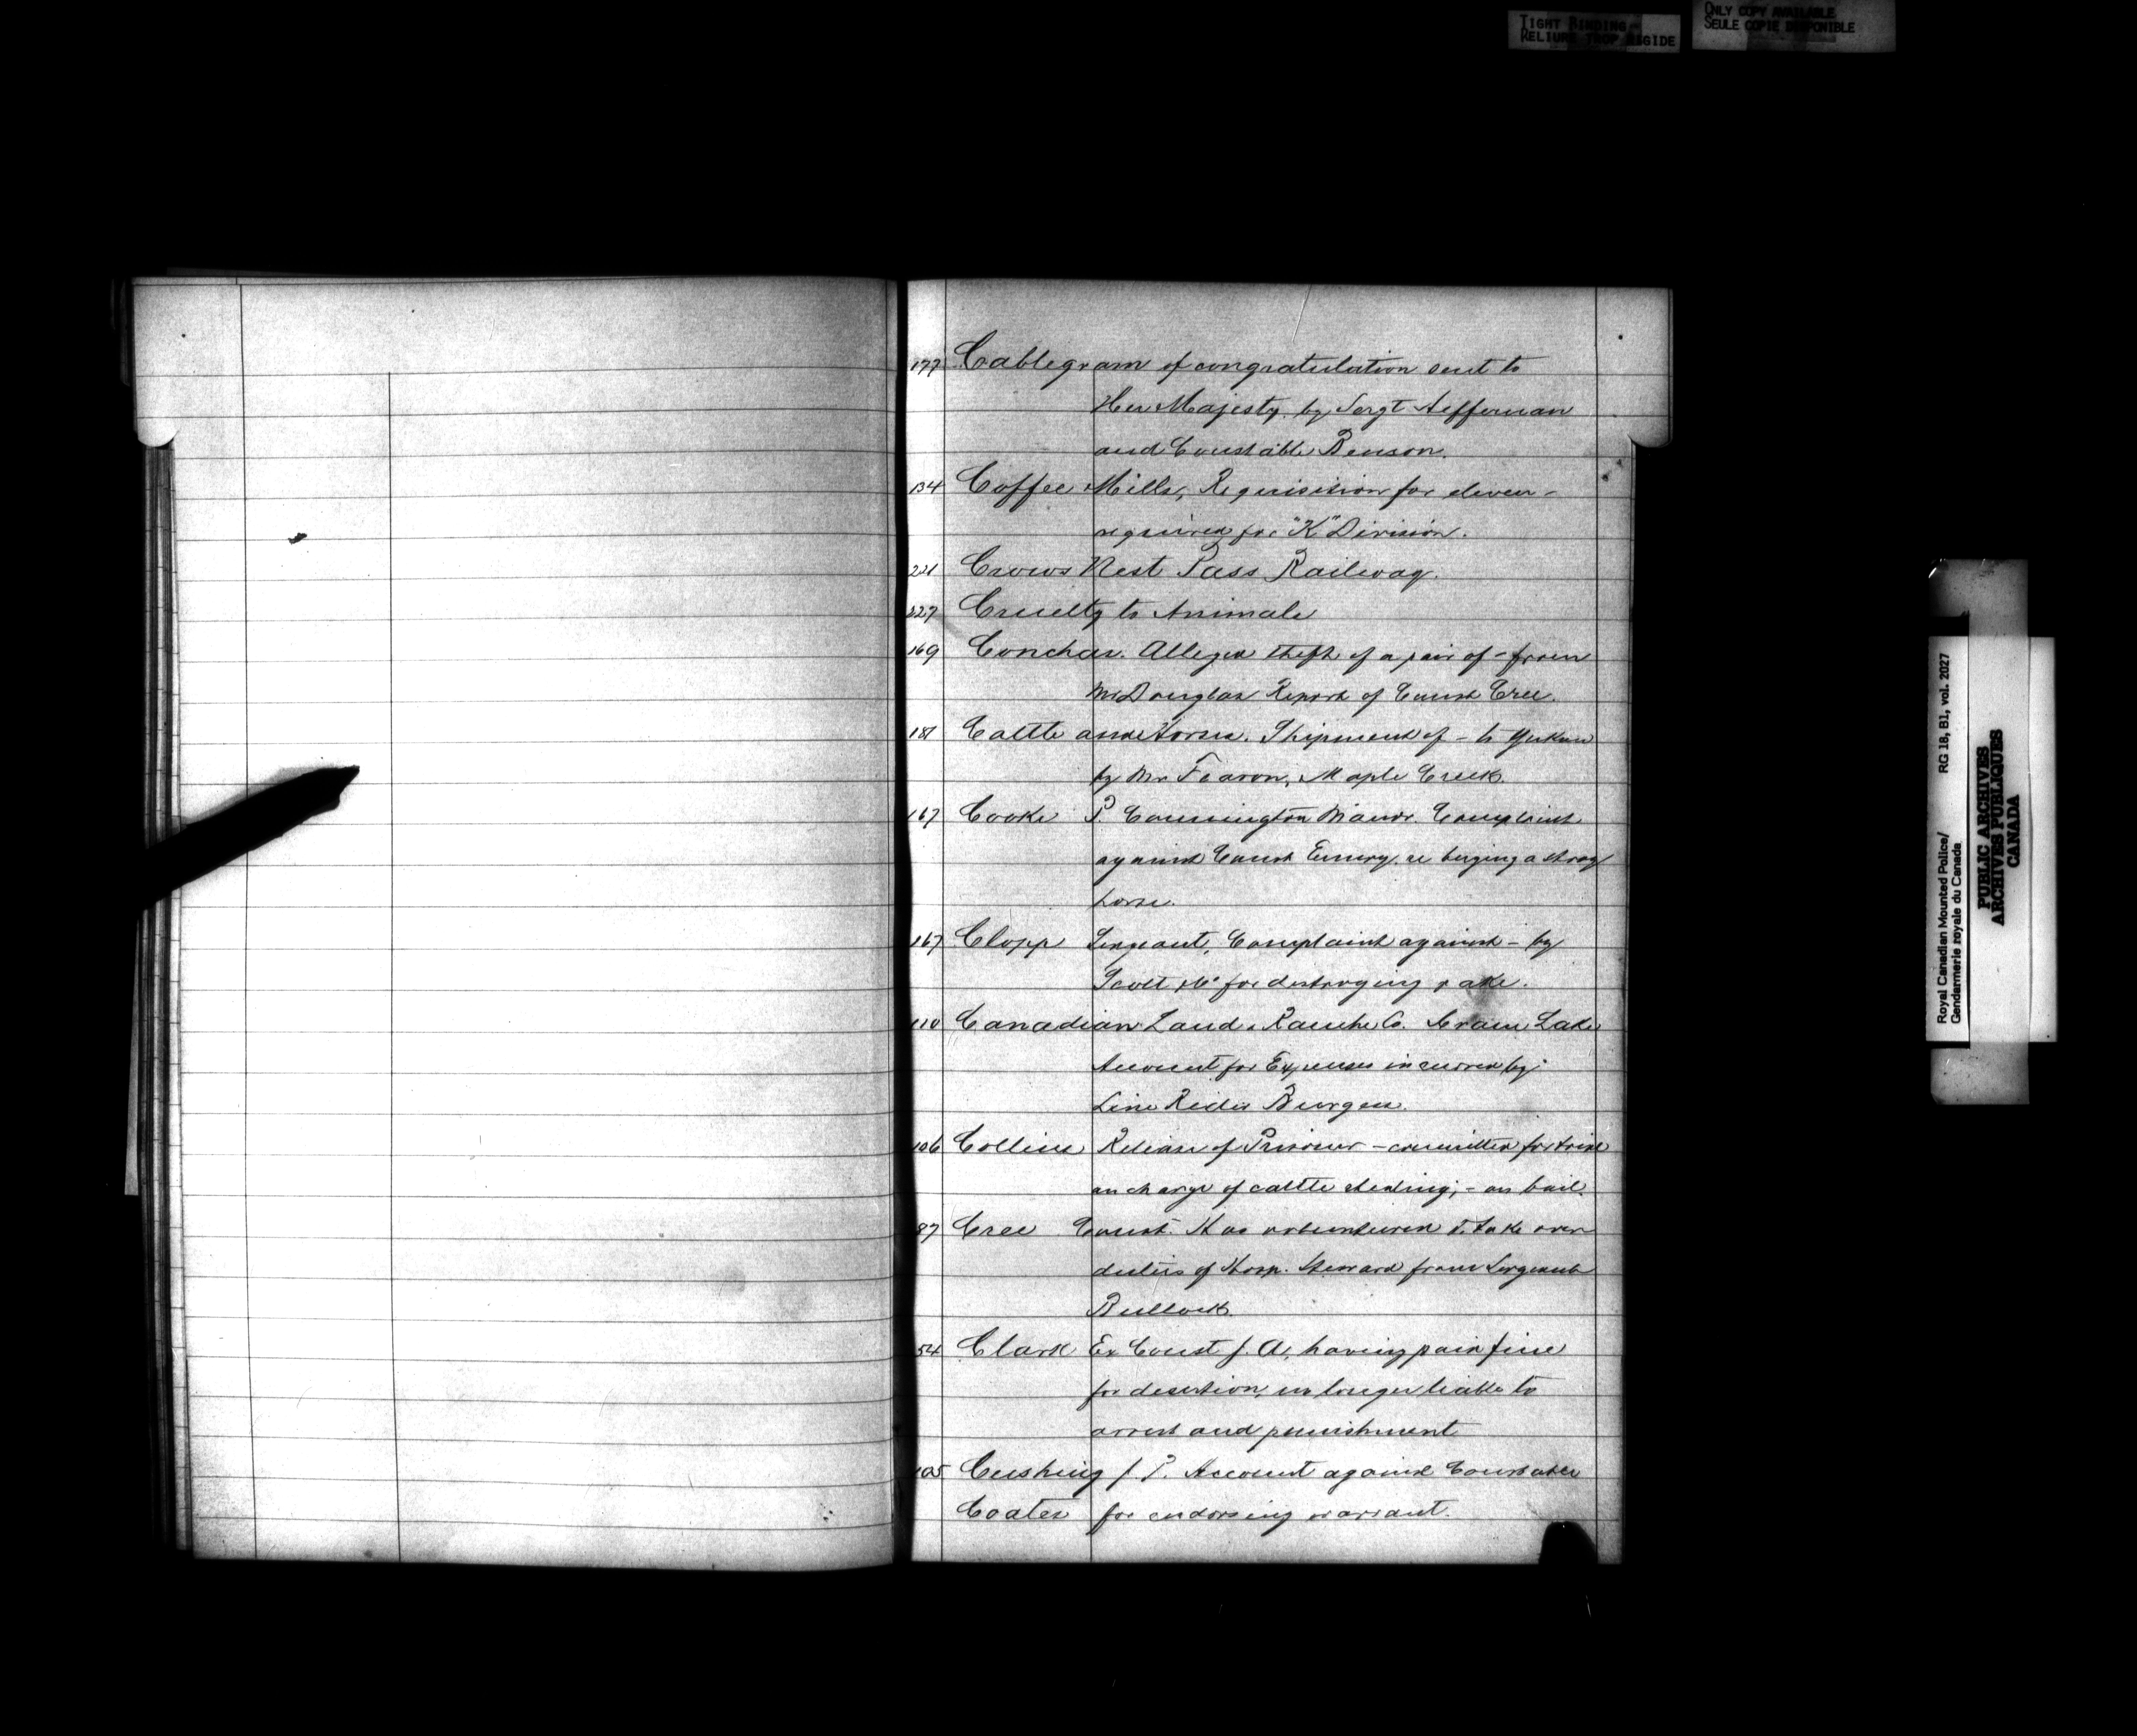 TIGHT BINDING
RELIURE TROP RIGIDE
ONLY COPY AVAILABLE
SEULE COPIE DISPONIBLE
177 Cablegram of congratulation sent to
Her Majesty, by Sergt Heffernan
and Constable Benson.
134 Coffee Mills, Requisition for eleven -
required for "K" Division.
221 Crows Nest Pass Railway.
227 Cruelty to Animals
169 Conchas. Alleged theft of a pair of - from
McDouglas Report of Const Cree.
181 Cattle and Horses. Shipment of - to Yukon
by Mr Fearon, Maple Creek
167 Cooke P. Cannington Manor. Complaint
against Const Emery, re buying a stray
horse.
167 Clopp Sergeant, Complaint against - by
Scott for destroying rake.
110 Canadian Land & Ranche Co. Crane Lake
Account for Expenses incurred by
Line Rider Burgess.
106 Collins Release of Prisoner - committed for trial
on charge of cattle stealing, - on bail.
87 Cree Const. Has volunteered to take over
duties of Hosp. Steward from Sergeant
Bullock.
54 Clark Ex Const J. A, having paid fine
for desertion, no longer liable to
arrest and punishment
105 Cushing J. P. Account against Constable
Coates for endorsing warrant.
Royal Canadian Mounted Police/
Gendarmerie royale du Canada
RG 18, B1, vol. 2027
PUBLIC ARCHIVES
ARCHIVES PUBLIQUES
CANADA